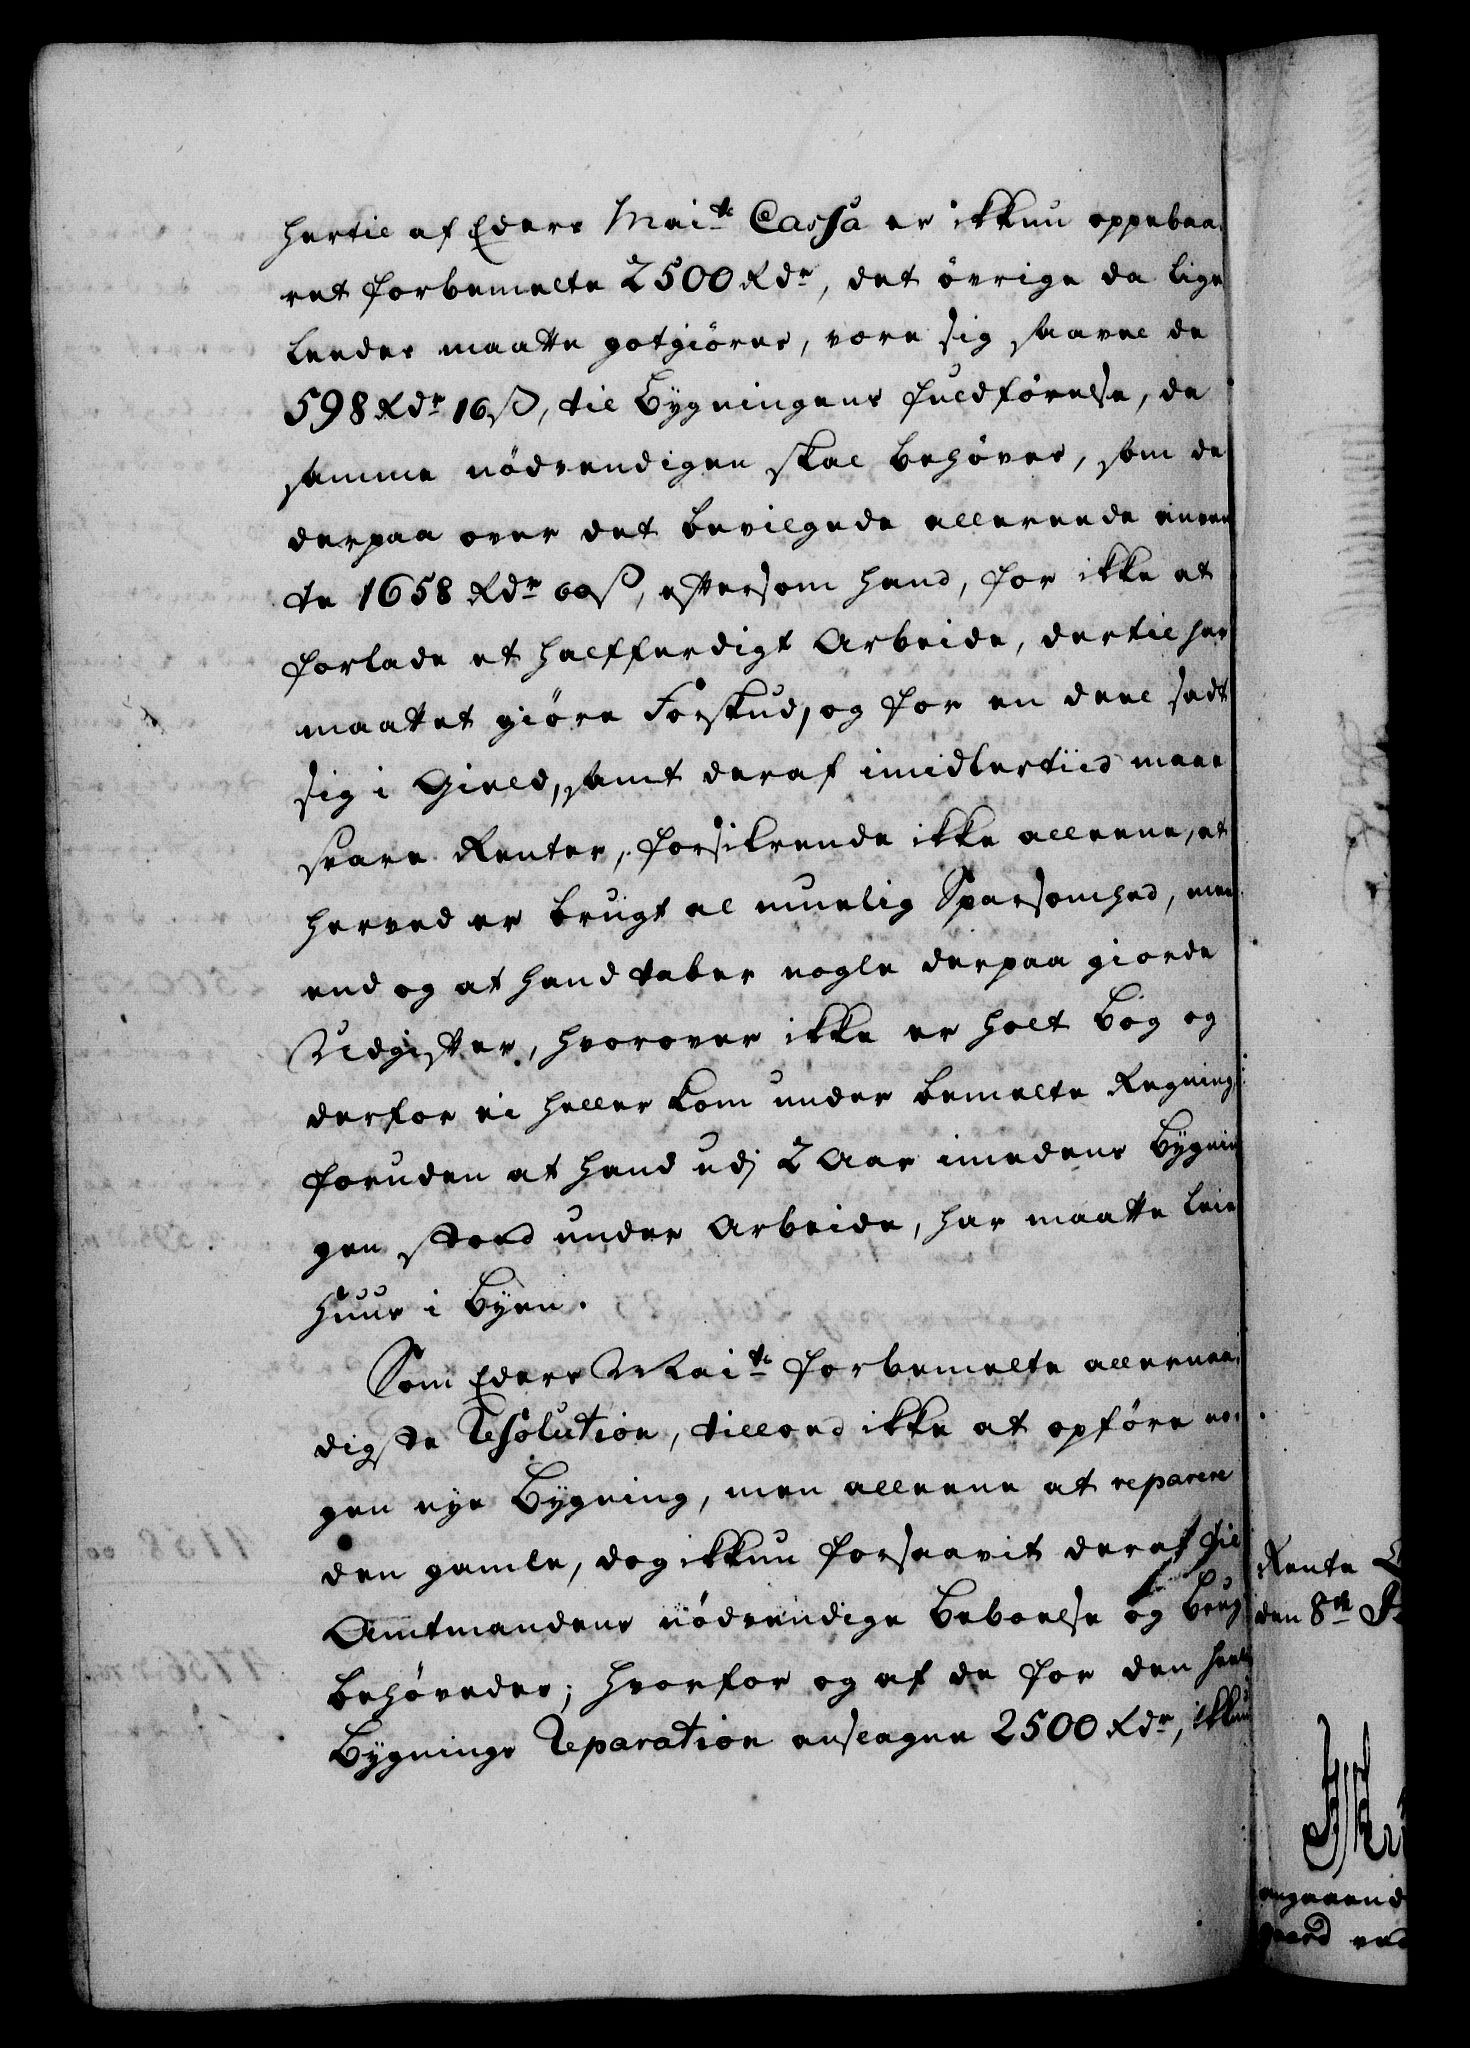 hertil af Eders Mai.ts Cassa er ikkun oppebaa-
ret forbemelte 2500 Rdr, det övrige da lige
leedes maatte gotgiöres, være sig saavel de
598 Rdr 16ß, til Bÿgningens fuldförelse, da
samme nödvendigen skal behöves, som de
derpaa over det bevilgede allereede anven
te 1658 Rdr 60ß, eftersom hand, for ikke at
forlade et halfferdigt Arbeide, dertil har
maattet giöre Forskud, og for en deel sadt
sig i Gield, samt deraf imidlertiid maae
svare Renter, forsikrende ikke alleene, at
herved er brugt al muelig Sparsomhed, men
end og at hand taber nogle derpaa giorde
Udgifter, hvorover ikke er holt Bog og
derfor ei heller kom under bemelte Regning
foruden at hand udj 2 Aar imedens Bÿgnin
gen stoed under Arbeide, har maatte leie
Huus i Bÿen.
Som Eders Mai.ts forbemelte allernaa-
digste Resolution, tillod ikke at opföre no-
gen nye Bÿgning, men alleene at reparere
den gamle, dog ikkun forsaavit deraf til
Amtmandens nödvendige Beboelse og Brug
behövedes; hvorfor og af de for den heele
Bÿgnings Reparation anslagne 2500 Rdr, ikkun
Rente
den 8de
angaaend
gaard ved